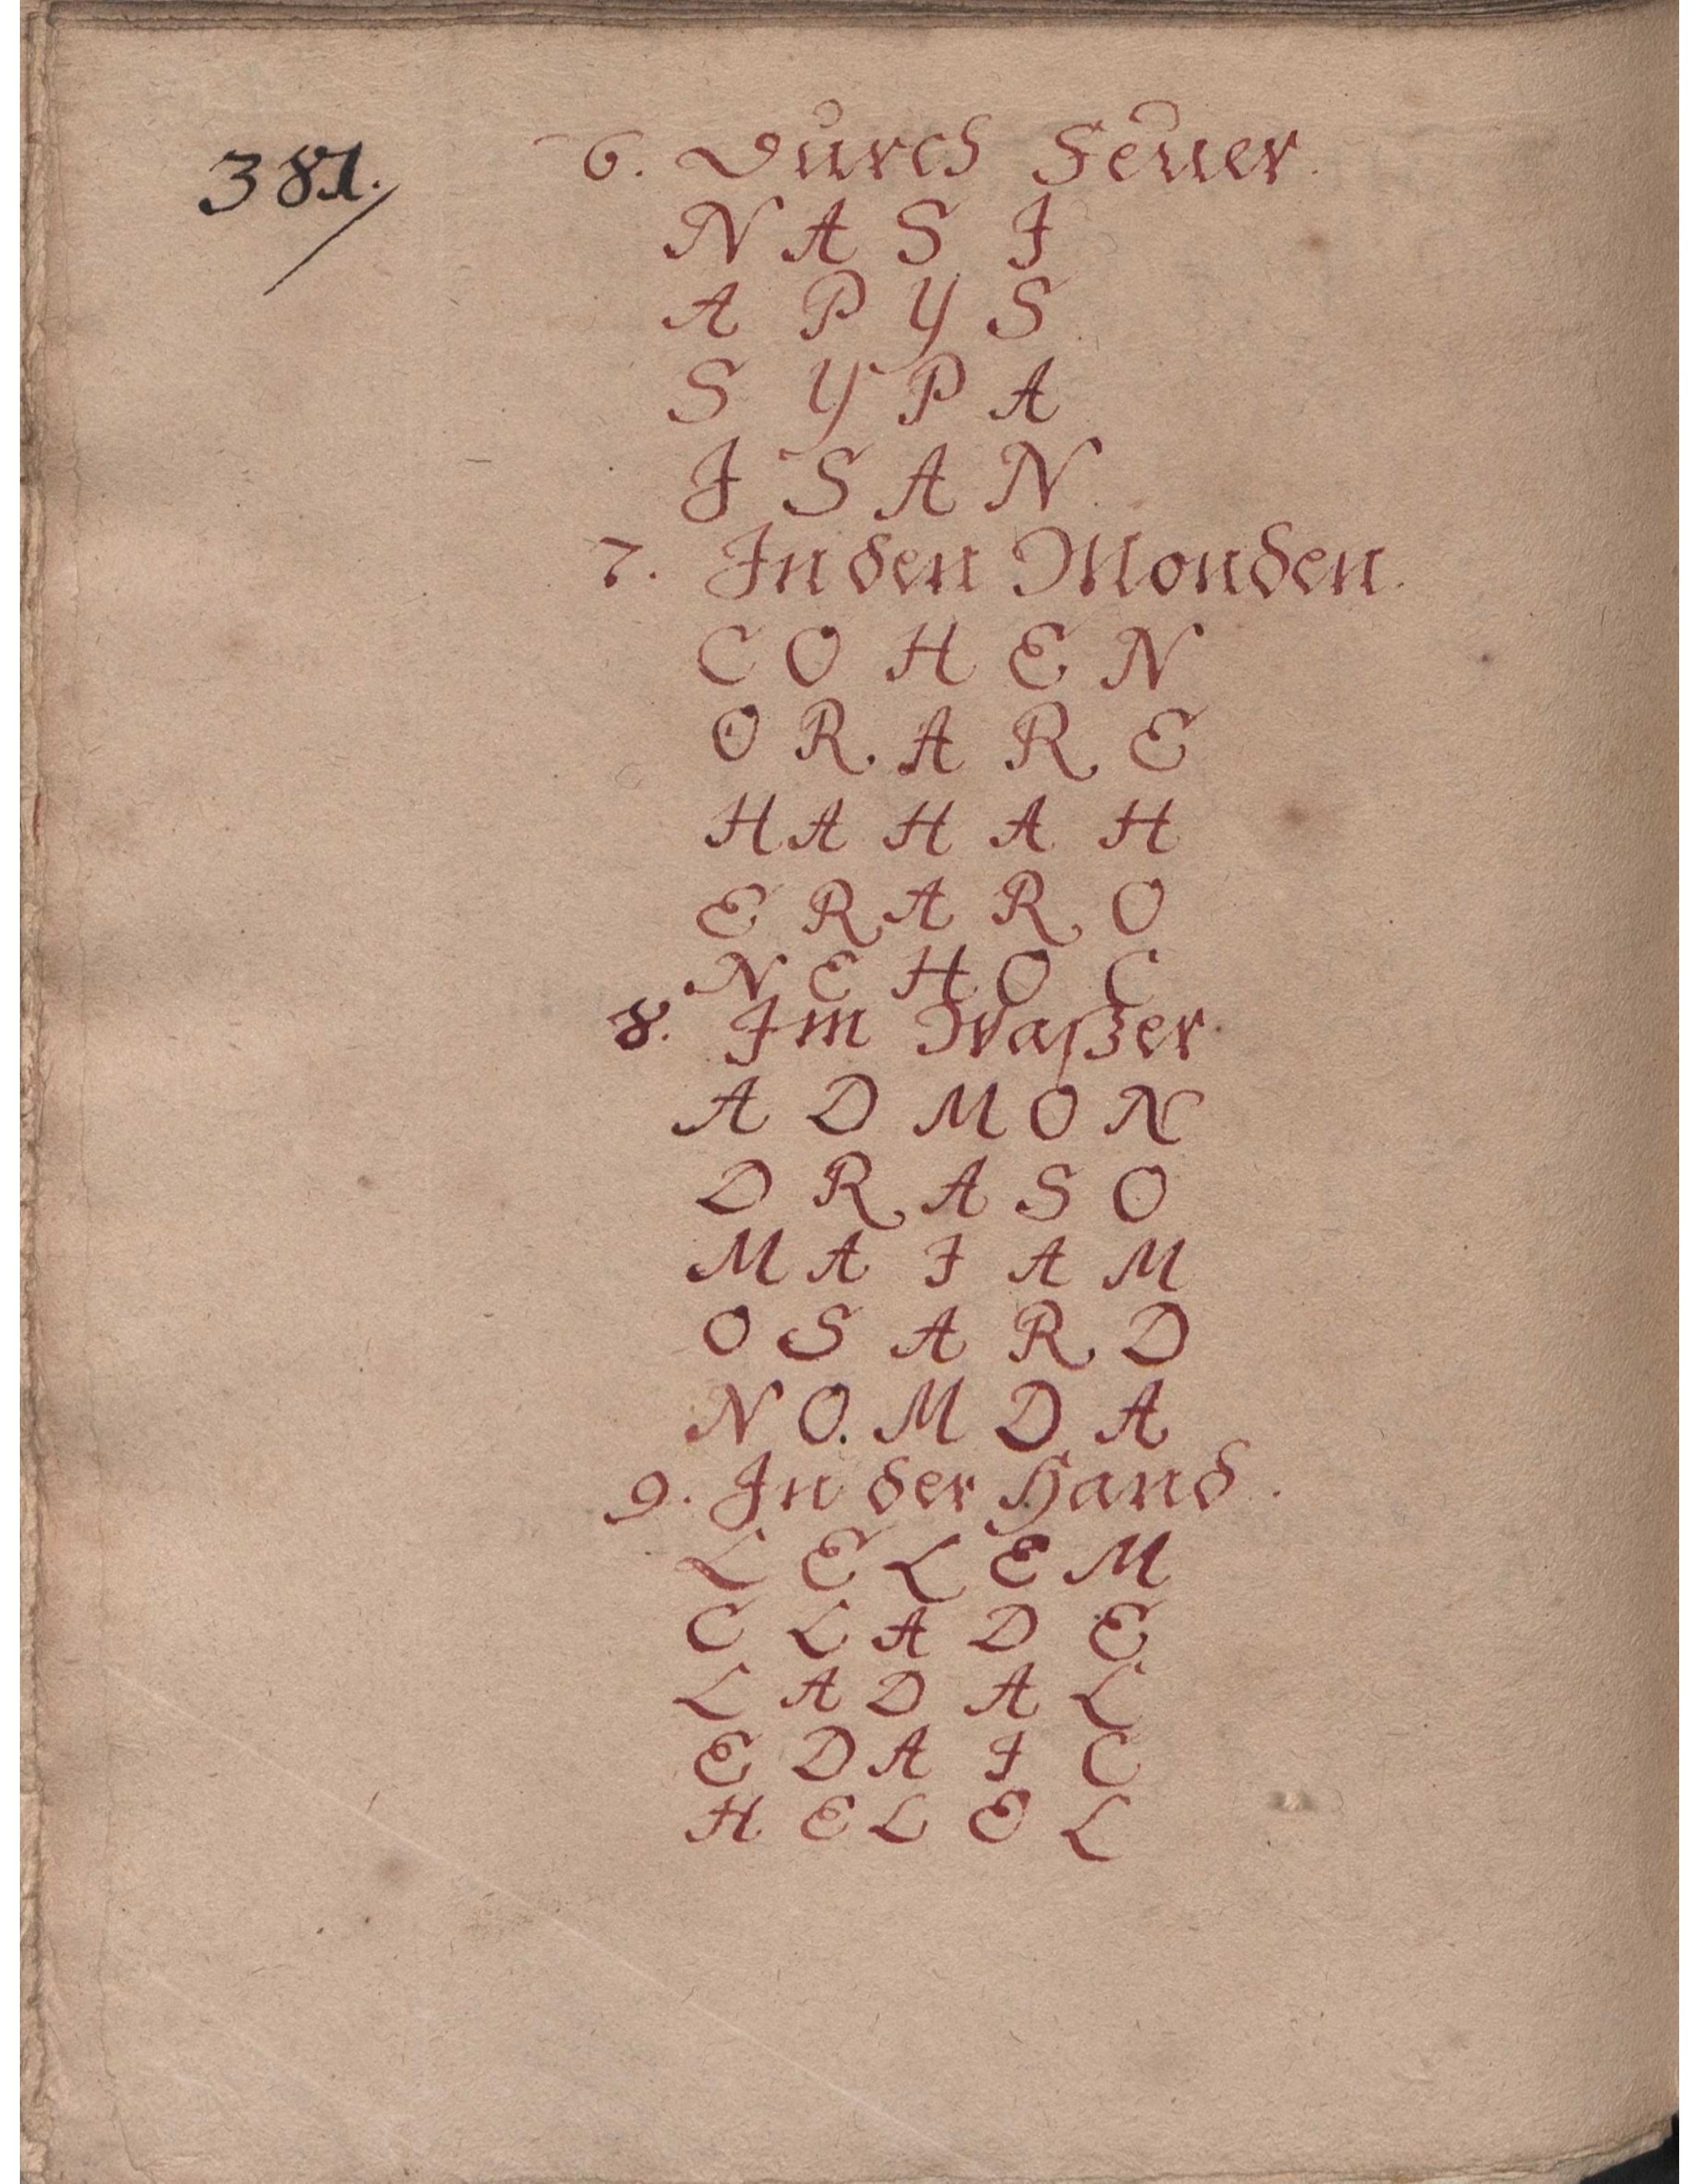 381.
6. Durch Feuer.
N A S I
A P Y S
S Y P A
I S A N
7. In den Monden.
C O H E N
O R A R E
H A H A H
E R A R O
N E H O C
8. Im Waßer.
A D M O N
D R A S O
M A I A M
O S A R D
N O. M D A
9. In der Hand.
L E L E M
C L A D E
L A D A L
E D A I C
H E L E L